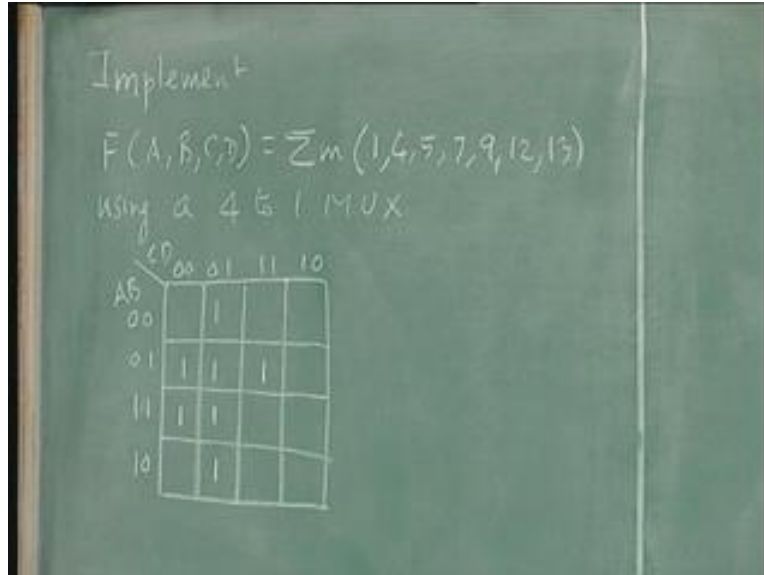 Implement
F(A,B,C,D) = Σm (1,4,5,7,9,12,13)
using a 4 to 1 MUX
CD 00 01 11 10
AB
00 1
01 1 1 1
11 1 1
10 1